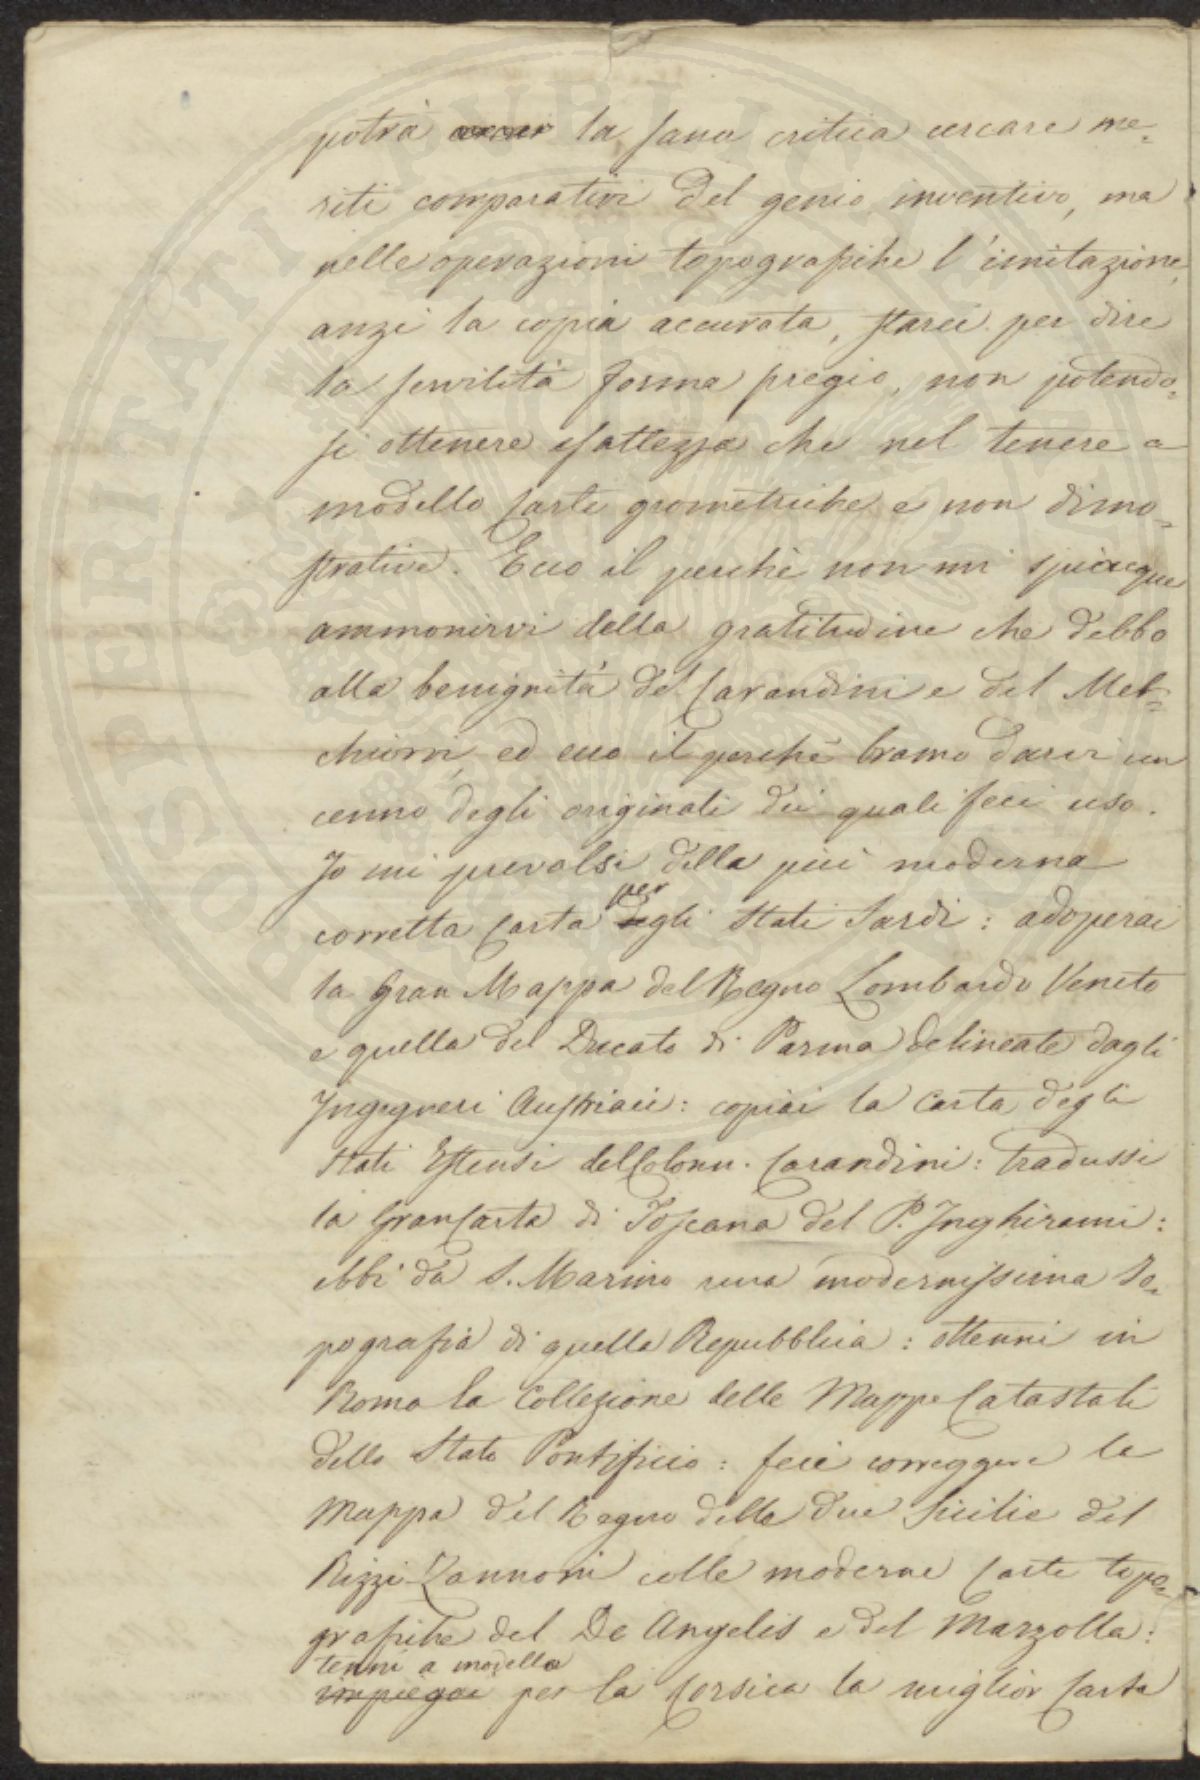 potrà la sana critica cercare me-
riti comparativi del genio inventivo, ma
nelle operazioni topografiche l'imitazione,
anzi la copia accurata, starei per dire
la servilità forma pregio, non potendo-
si ottenere esattezza che nel tenere a
modello Carte geometriche e non dimo-
strative. Ecco il perchè non mi spiacque
ammonirvi della gratitudine che debbo
alla benignità del Carandini e del Mel-
chiorri, ed ecco il perchè bramo darvi un
cenno degli originali dei quali feci uso.
Jo mi prevalsi della più moderna
per
corretta Carta degli Stati Sardi: adoperai
la Gran Mappa del Regno Lombardo Veneto
e quella del Ducato di Parma delineate dagli
Jngegneri Austriaci: copiai la Carta degli
Stati Estensi del Colonn. Carandini: tradussi
la Gran Carta di Toscana del P. Jnghirami:
ebbi da S. Marino una modernissima To-
pografia di quella Repubblica: ottenni in
Roma la Collezione delle Mappe Catastali
dello Stato Pontificio: feci correggere la
Mappa del Regno delle due Sicilie del
Rizzi Zannoni colle moderne Carte topo-
grafiche del De Angelis e del Marzolla:
tenni a modello
impiegai per la Corsica la miglior Carta
PROSPERITATI PUBLICAE